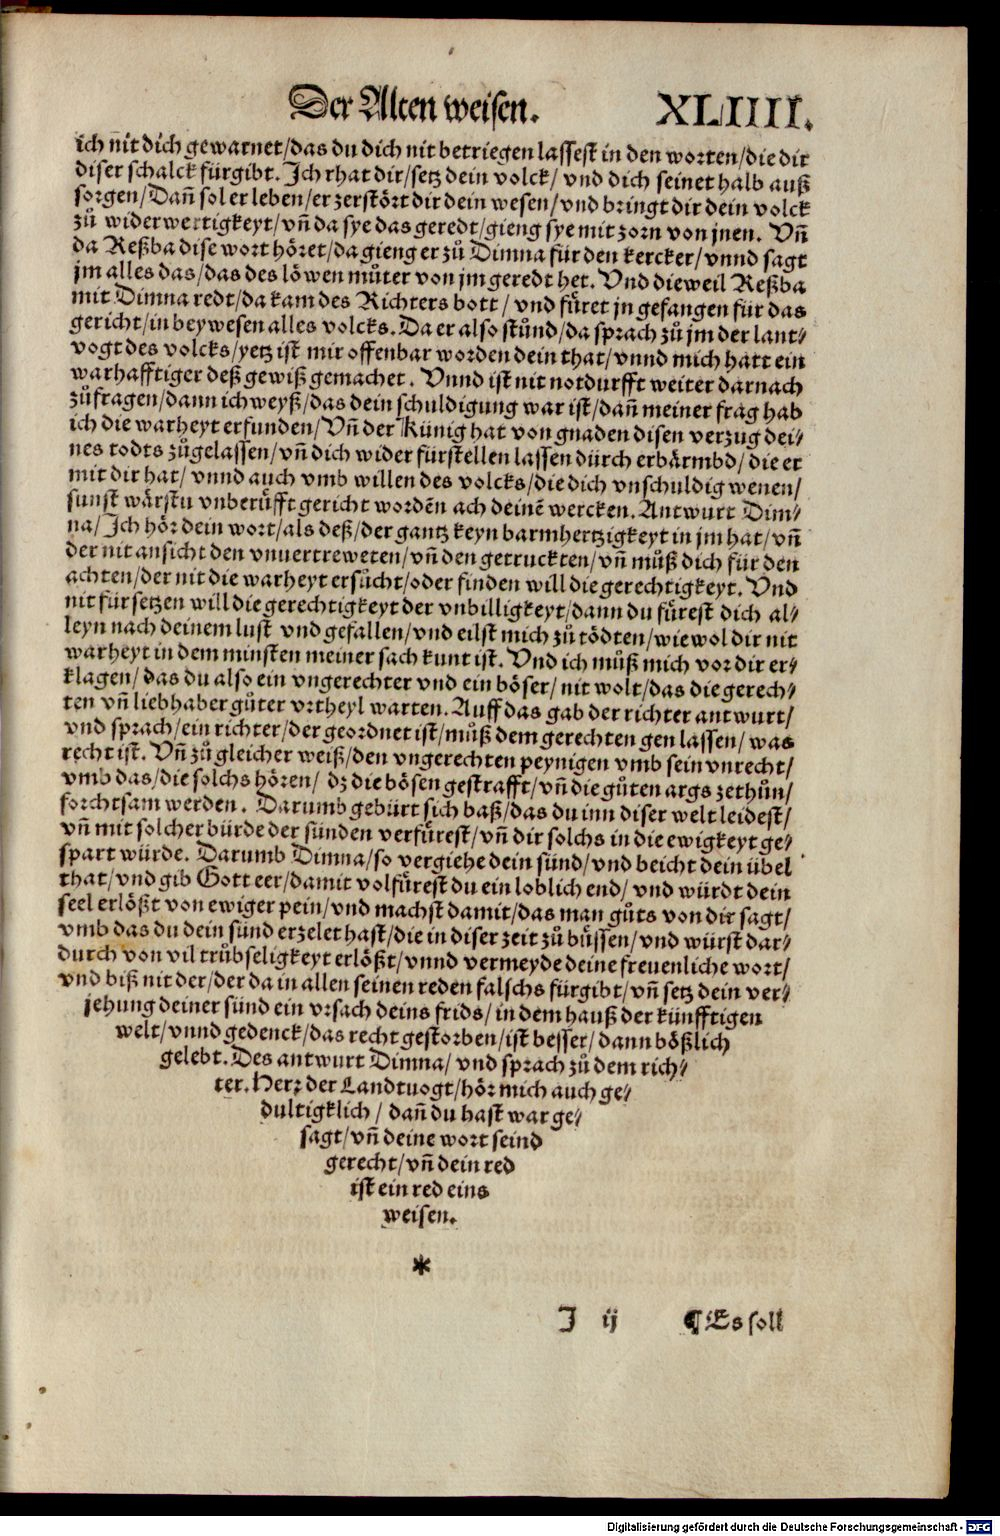 Der Alten weisen. XLIIII.
ich nit dich gewarnet/das du dich nit betriegen lassest in den worten/die dir
diser schalck fürgibt. Ich rhat dir/setz dein volck/ vnd dich seinet halb auß
sorgen/Dañ sol er leben/er zerstört dir dein wesen/vnd bringt dir dein volck
zů widerwertigkeyt/vñ da sye das geredt/gieng sye mit zorn von jnen. Vñ
da Reßba dise wort höret/da gieng er zů Dimna für den kercker/vnnd sagt
jm alles das/das des löwen můter von jm geredt het. Vnd dieweil Reßba
mit Dimna redt/da kam des Richters bott/ vnd fůret jn gefangen für das
gericht/in beywesen alles volcks. Da er also stůnd/da sprach zů jm der lant⸗
vogt des volcks/yetz ist mir offenbar worden dein that/vnnd mich hatt ein
warhafftiger deß gewiß gemachet. Vnnd ist nit notdurfft weiter darnach
zůfragen/dann ich weyß/das dein schuldigung war ist/dañ meiner frag hab
ich die warheyt erfunden/Vñ der Künig hat von gnaden disen verzug dei⸗
nes todts zůgelassen/vñ dich wider fürstellen lassen durch erbärmbd/die er
mit dir hat/ vnnd auch vmb willen des volcks/die dich vnschuldig wenen/
sunst wärstu vnberůfft gericht wordẽ nach deinẽ wercken. Antwurt Dim⸗
na/Ich hör dein wort/als deß/der gantz keyn barmhertzigkeyt in jm hat/vñ
der nit ansicht den vnuertreweten/vñ den getruckten/vñ můß dich für den
achten/der nit die warheyt ersůcht/oder finden will die gerechtigkeyt. Vnd
nit fürsetzen will die gerechtigkeyt der vnbilligkeyt/dann du fůrest dich al⸗
leyn nach deinem lust vnd gefallen/vnd eilst mich zů tödten/wiewol dir nit
warheyt in dem minsten meiner sach kunt ist. Vnd ich můß mich vor dir er⸗
klagen/das du also ein vngerechter vnd ein böser/nit wolt/das die gerech⸗
ten vñ liebhaber gůter vrtheyl warten. Auff das gab der richter antwurt/
vnd sprach/ein richter/der geordnet ist/můß dem gerechten gen lassen/was
recht ist. Vñ zů gleicher weiß/den vngerechten peynigen vmb sein vnrecht/
vmb das/die solchs hören/ dz die bösen gestrafft/vñ die gůten args zethůn/
forchtsam werden. Darumb gebürt sich baß/das du inn diser welt leidest/
vñ mit solcher bürde der sünden verfůrest/vñ dir solchs in die ewigkeyt ge⸗
spart würde. Darumb Dimna/so vergiehe dein sünd/vnd beicht dein übel
that/vnd gib Gott eer/damit volfůrest du ein loblich end/ vnd würdt dein
seel erlößt von ewiger pein/vnd machst damit/das man gůts von dir sagt/
vmb das du dein sünd erzelet hast/die in diser zeit zů bůssen/vnd würst dar⸗
durch von vil trůbseligkeyt erlößt/vnnd vermeyde deine freuenliche wort/
vnd biß nit der/der da in allen seinen reden falschs fürgibt/vñ setz dein ver⸗
jehung deiner sünd ein vrsach deins frids/in dem hauß der künfftigen
welt/vnnd gedenck/das recht gestorben/ist besser/dann bößlich
gelebt. Des antwurt Dimna/ vnd sprach zů dem rich⸗
ter. Herr der Landtuogt/hör mich auch ge⸗
dultigklich/ dañ du hast war ge⸗
sagt/vñ deine wort seind
gerecht/vñ dein red
ist ein red eins
weisen.
*
J ij ¶Es soll
Digitalisierung gefördert durch die Deutsche Forschungsgemeinschaft - DFG